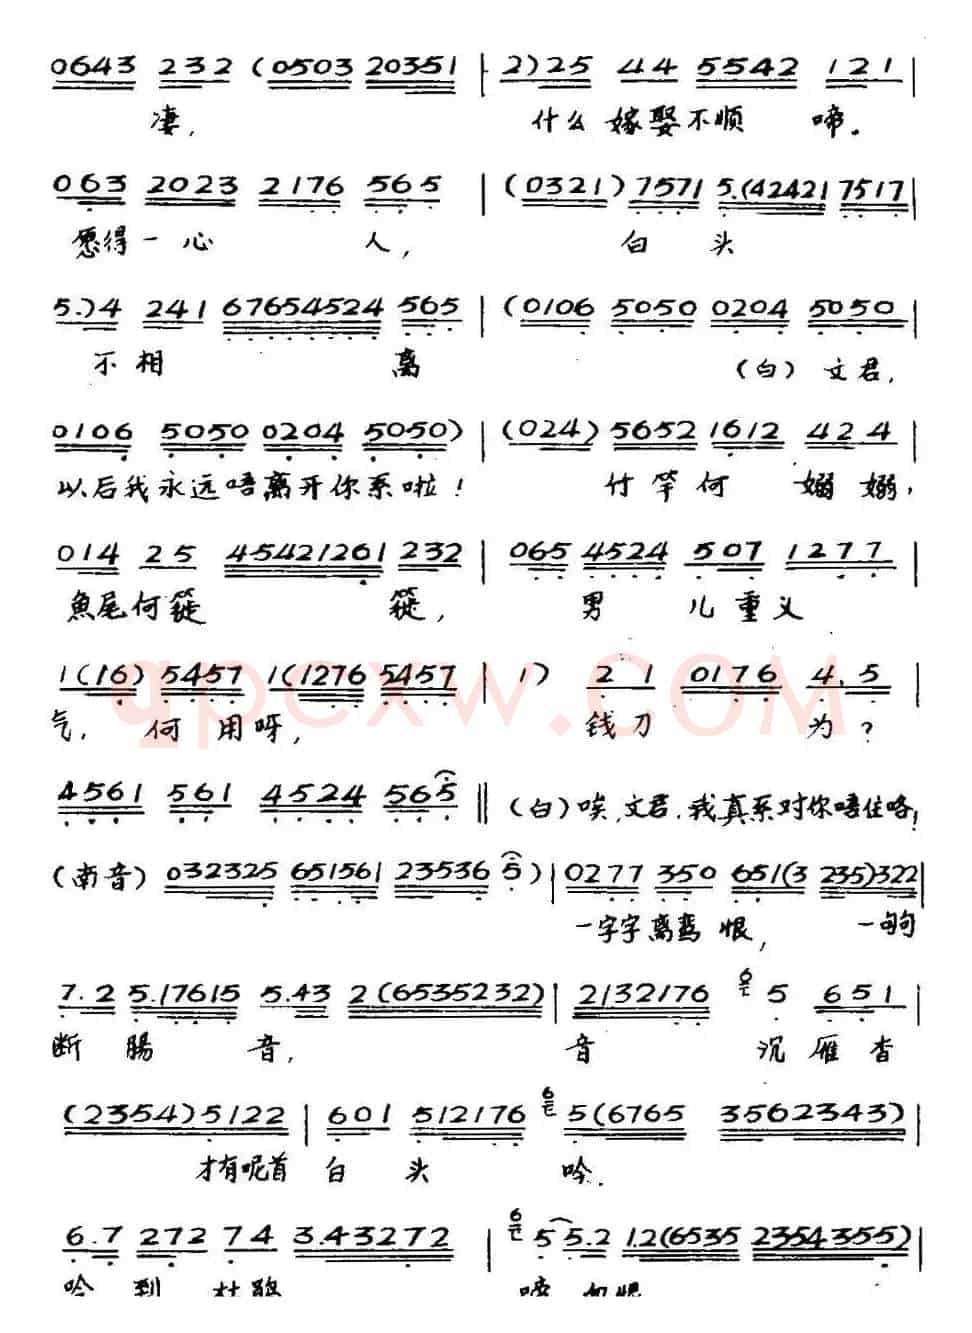 0643 232 (0503 20351 | 2)25 44 5542 121 |
凄, 什么嫁娶不顺 啼.
063 2023 2176 565 | (0321)7571 5.(42421 7517 |
愿得一心 人, 白 头
5.)4 241 67654524 565 | (0106 5050 0204 5050
不相 离 (白) 文君,
0106 5050 0204 5050) | (024)5652 1612 424 |
以后我永远唔离开你系啦! 竹竿何 嫋嫋,
014 25 45421261 232 | 065 4524 507 1277 |
魚尾何簁 簁, 男 儿重义
1(16) 5457 1(1276 5457 | 1) 21 0176 4.5 |
气, 何 用呀, 钱刀 为?
4561 561 4524 565 ‖ (白)唉,文君,我真系对你唔住咯!
(南音) 032325 651561 23536 5) | 0277 350 651(3 235)322 |
一字字离鸾 恨, 一句句
7.2 5.17615 5.43 2(6535232) | 2132176 6 5 651 |
断 腸 音, 音 沉雁杳
(2354)5122 | 601 512176 6 5(6765 3562343) |
才有呢首 白 头 吟.
6.7 272 74 3.43272 | 6 55.2 1.2(6535 2354355) |
吟 到
qpcxw.COM